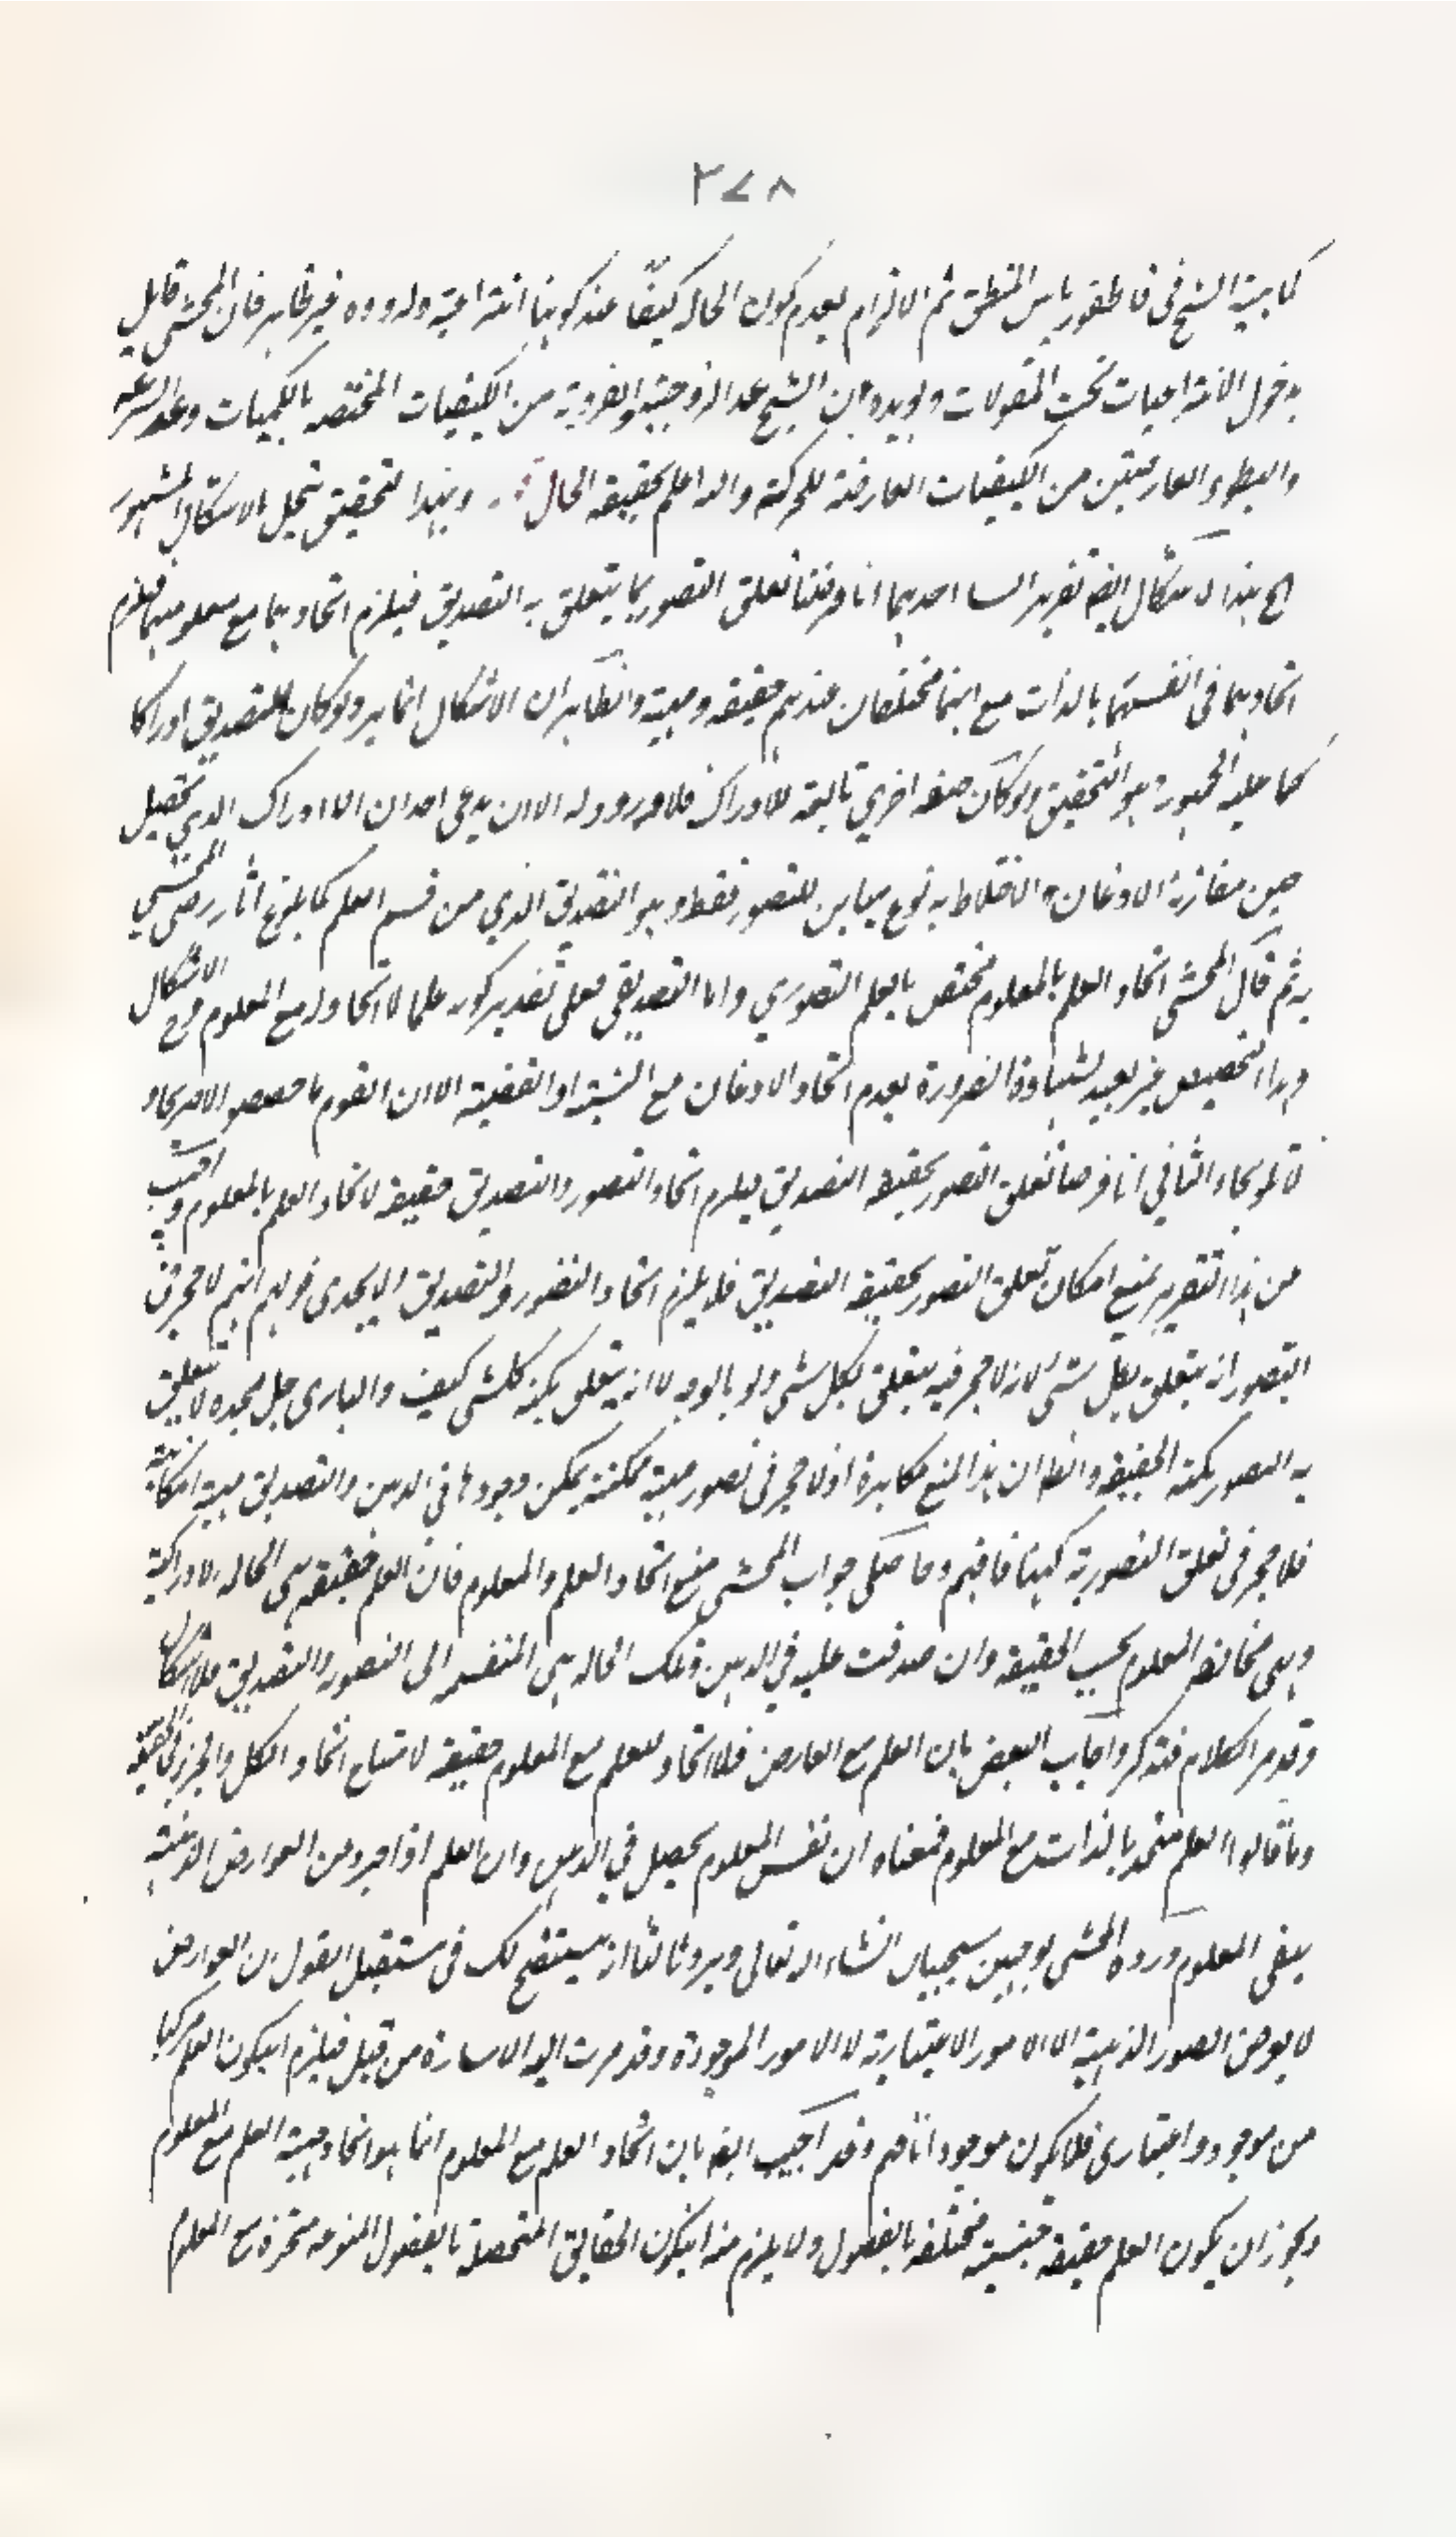 ٢٧٨
كما بينه الشيخ في قاطيغورياس المنطق ثم الالزام بعدم كون الحالة كيفا عند كونها انتزاعية وروده غير ظاهر فان المحشي قايل
بدخول الانتزاعيات تحت المقولات ويويده ان الشيخ عد الزوجية والفردية من الكيفيات المختصه بالكميات وعد السرعة
والبطوء العارضتين من الكيفيات العارضة للحركة والله اعلم بحقيقة الحال وبهذا التحقيق ينحل الاشكال المشهور
الخ هذا الاشكال ايضا تقريرات احدهما انا فرضنا تعلق التصور بما يتعلق به التصديق فيلزم اتحادهما مع معلومهما فيلزم
اتحادهما في انفسهما بالذات مع انهما مختلفان عندهم حقيقة ومهية والظاهر ان الاشكال انما يرد لو كان التصديق ادراكا
كما عليه الجمهور وهو التحقيق ولو كان صفة اخري تابعة للادراك فلا ورود له الا ان يدعى احد ان الادراك الذي يحصل
حين مقارنة الاذعان والاختلاط به نوع مباين للتصور فقط وهو التصديق الذي من قسم العلم كما يلوح اثار رضى المحشي
به ثم قال المحشي اتحاد العلم بالمعلوم مختص بالعلم التصوري واما التصديقي فعلى تقدير كونه علما لا اتحاد له مع المعلوم فرج الاشكال
وهذا التخصيص غير بعيد لشهادة الضرورة بعدم اتحاد الاذعان مع النسبة او القضية الا ان القوم ما خصصوا الامر بحاد
الثاني انا فرضنا تعلق التصور بحقيقة التصديق فيلزم اتحاد التصور والتصديق حقيقة لاتحاد العلم بالمعلوم واجيب
من هذا التقرير بمنع امكان تعلق التصور بحقيقة التصديق فلا يلزم اتحاد التصور والتصديق ولا يجدى قولهم انهم لا حجر في
التصور انه يتعلق بكل شيء لانه لا حجر فيه يتعلق بكل شي ولو بالوجه لا انه يتعلق بكنه كل شي كيف والباري جل مجده لا يتعلق
به التصور بكنه الحقيقة والظاهر ان هذا المنع مكابرة اذ لا حجر في تصور مهية ممكنة يمكن وجودها في الذهن والتصديق مهية امكانية
فلا حجر في تعلق التصور به كيفا فافهم وحاصل جواب المحشي منع اتحاد العلم والمعلوم فان العلم حقيقة هي الحاله الادراكية
وهي مخالفة المعلوم بحسب الحقيقة وان صدقت عليه في الذهن وتلك الحاله هي المنقسمة الى التصور والتصديق فلا اشكال
وقد مر الكلام فتذكر واجاب البعض بان العلم مع العارض فلا اتحاد للعلم مع المعلوم حقيقة لامتناع اتحاد الكل والجزء في الحقيقة
وما قالوا العلم متحد بالذات مع المعلوم فمعناه ان نفس المعلوم يحصل في الذهن وان العلم اذا جرد من العوارض الذهنية
يبقى المعلوم ورده المحشي بوجهين سيجيان انشاء الله تعالى ويرد ثالثا انه سيتضح لك في مستقبل القول ان العوارض
لا يعرض الصور الذهنية الا الامور الاعتبارية لا الامور الموجودة وقد مرت اليه الاشارة من قبل فيلزم ان يكون العلم مركبا
من موجود واعتباري فلا يكون موجودا فافهم وقد اجيب ايضا بان اتحاد العلم مع المعلوم انما هو اتحاد مهية العلم مع المعلوم
ويجوز ان يكون العلم حقيقة جنسية مختلفه بالفصول ولا يلزم منه ان يكون الحقايق المتحصلة بالفصول المنوعه متحدة مع المعلوم